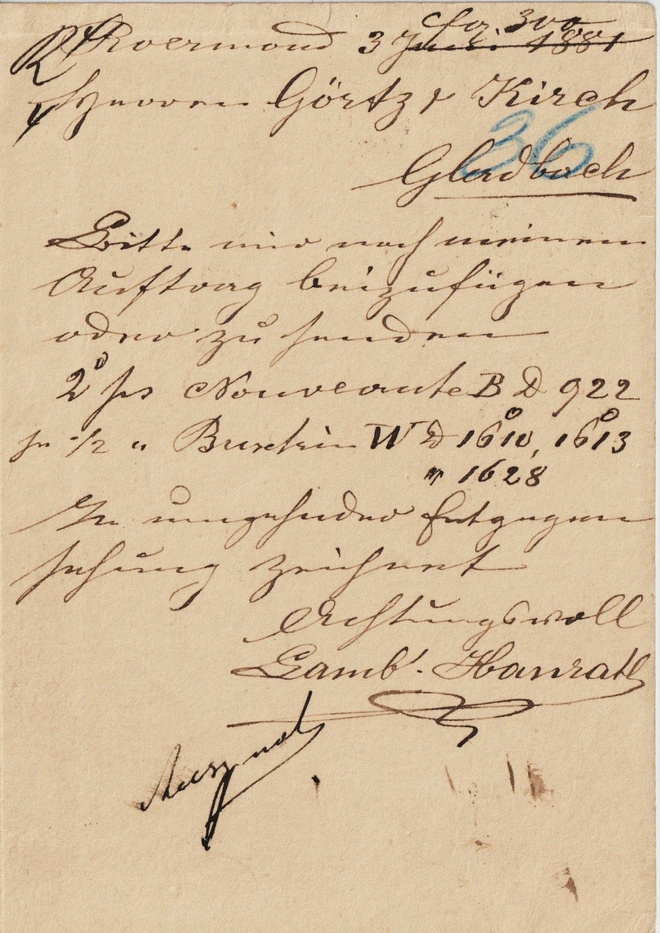 Roermond 3 Juni 1881
Herren Görtz & Kirch
36
Gladbach
Bitte mir noch meinem
Auftrag beizufügen
oder zu senden
2 ps Nouveaute B D 922
je 1/2 " Buxkin W D 1610, 1613
" 1628
In umgehender Entgegen
sehung zeichnet
Achtungsvoll
Lamb. Hanrath